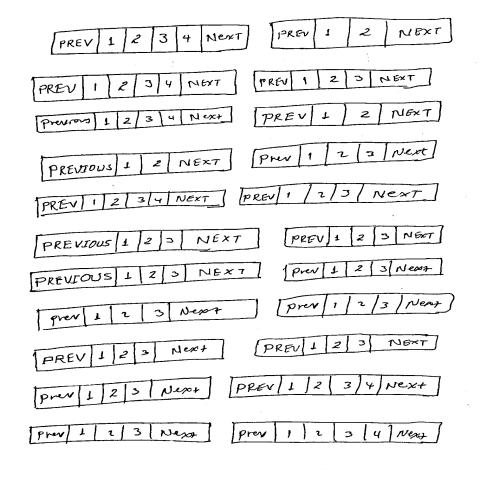 PREV 1 2 3 4 NexT PREV 1 2 NEXT
PREV 1 2 3 4 NEXT PREV 1 2 3 NEXT
Previous 1 2 3 4 Next PREV 1 2 NEXT
PREVIOUS 1 2 NEXT Prev 1 2 3 Next
PREV 1 2 3 4 NEXT PREV 1 2 3 NexT
PREVIOUS 1 2 3 NEXT PREV 1 2 3 NEXT
PREVIOUS 1 2 3 NEXT Prev 1 2 3 Next
prev 1 2 3 Next prev 1 2 3 Next
PREV 1 2 3 Next PREV 1 2 3 NEXT
prev 1 2 3 Next PREV 1 2 3 4 NexT
prev 1 2 3 Next prev 1 2 3 4 Next